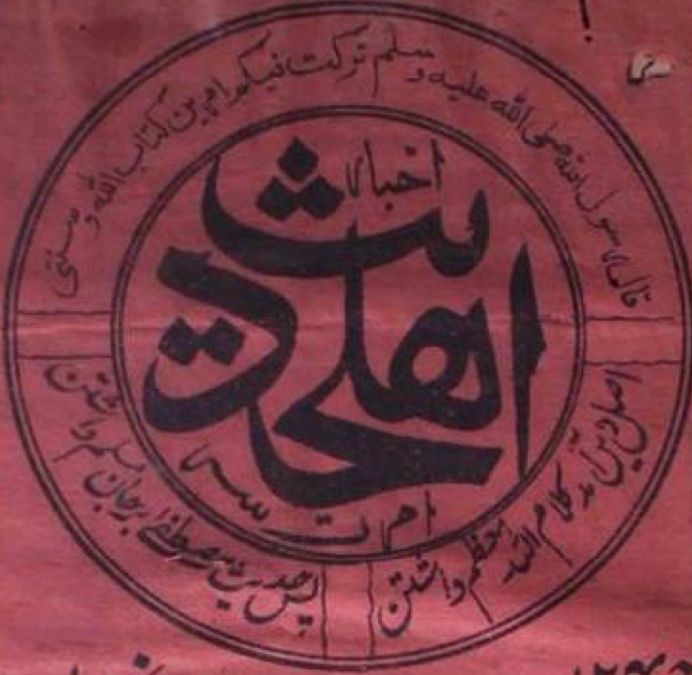 قال رسول اللہ صلی اللہ علیہ وسلم ترکت فیکم امرین کتاب اللہ و سنتی
اخبار
اھلحدیث
امرتسر
اصل دین آمد کلام اللہ معظم داشتن
پس حدیث مصطفےٰ برجان مسلم داشتن